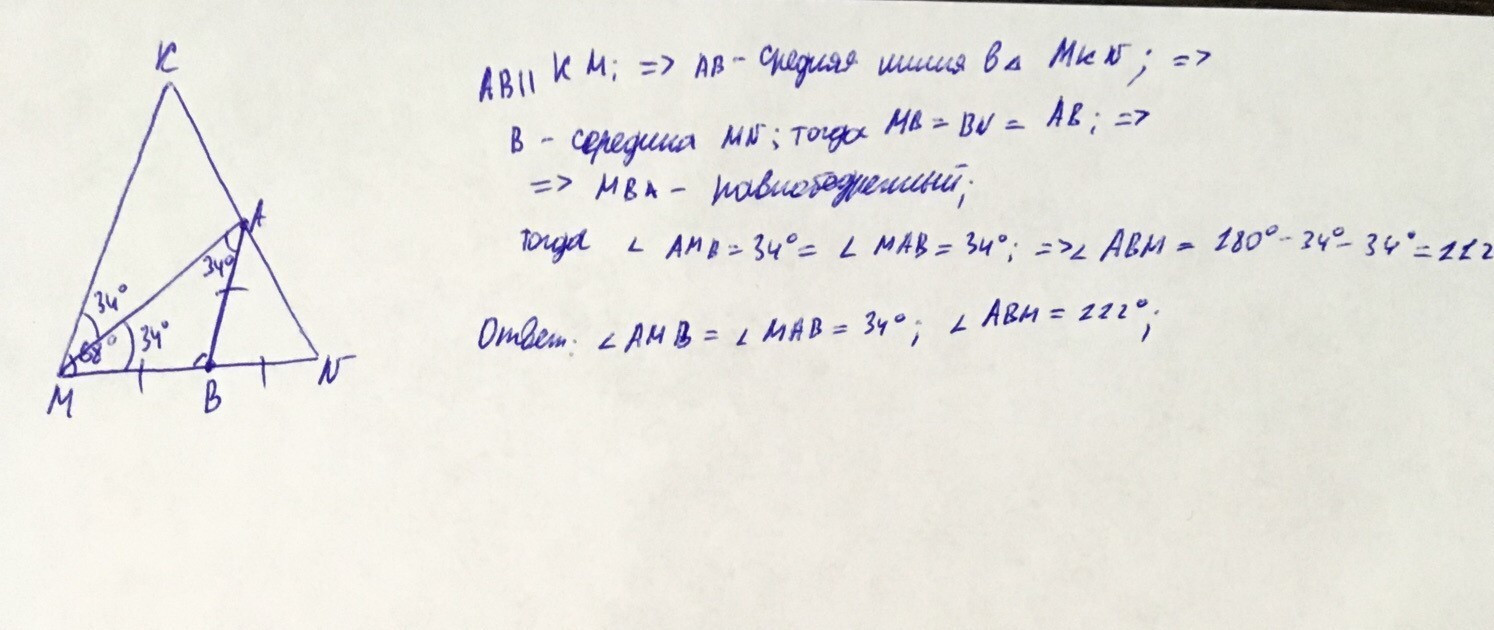 K
A
34°
34°
68°
34°
M
B
N
AB || KM; => AB - средняя линия в △ MKN; =>
B - середина MN; тогда MB = BN = AB; =>
=> MBA - равнобедренный;
тогда ∠ AMB = 34° = ∠ MAB = 34°; => ∠ ABM = 180° - 34° - 34° = 112
Ответ: ∠ AMB = ∠ MAB = 34°; ∠ ABM = 112°;